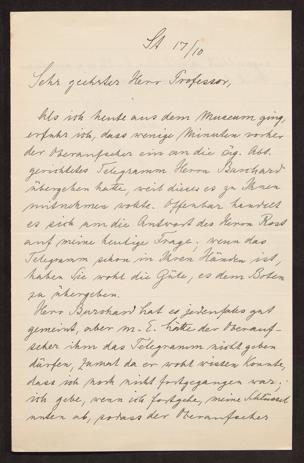 St 17/10
Sehr geehrter Herr Professor,
Als ich heute aus dem Museum ging,
erfuhr ich, dass wenige Minuten vorher
der Oberaufseher ein an die äg. Abt.
gerichtetes Telegramm Herrn Burchard
übergeben hatte, weil dieses es zu Ihnen
mitnehmen wollte. Offenbar handelt
es sich um die Antwort des Herrn Rost
auf meine heutige Frage; wenn das
Telegramm schon in Ihren Händen ist,
haben Sie wohl die Güte, es dem Boten
zu übergeben.
Herr Burchard hat es jedenfalls gut
gemeint, aber m. E. hätte der Oberauf-
seher ihm das Telegramm nicht geben
dürfen, zumal da er wohl wissen konnte,
dass ich noch nicht fortgegangen war;
ich gebe, wenn ich fortgehe, meine Schlüssel
unten ab, sodass der Oberaufseher